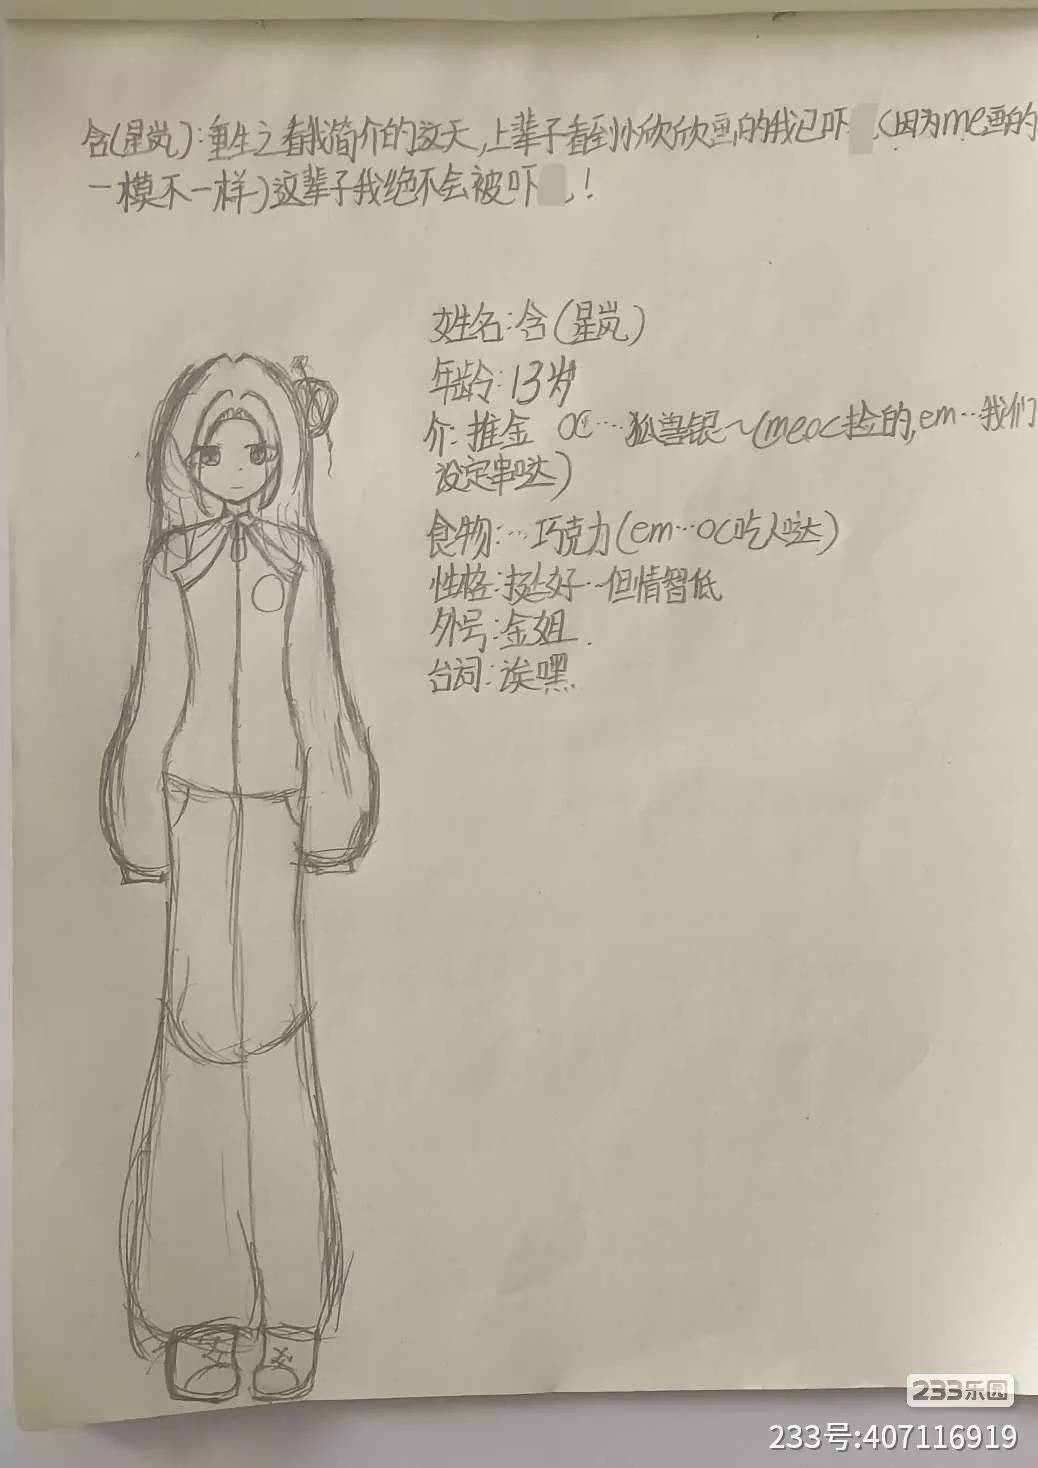 含(星岚):重生之看我简介的这天,上辈子看到小欣欣画的我已吓 (因为me画的
一模不一样)这辈子我绝不会被吓 !
姓名:含(星岚)
年龄:13岁
介:推金 OC…狐兽银~(meoc捡的,em…我们
设定串哒)
食物:…巧克力(em…OC吃人哒)
性格:挺好…但情智低
外号:金姐.
台词:诶嘿
233乐园
233号:407116919